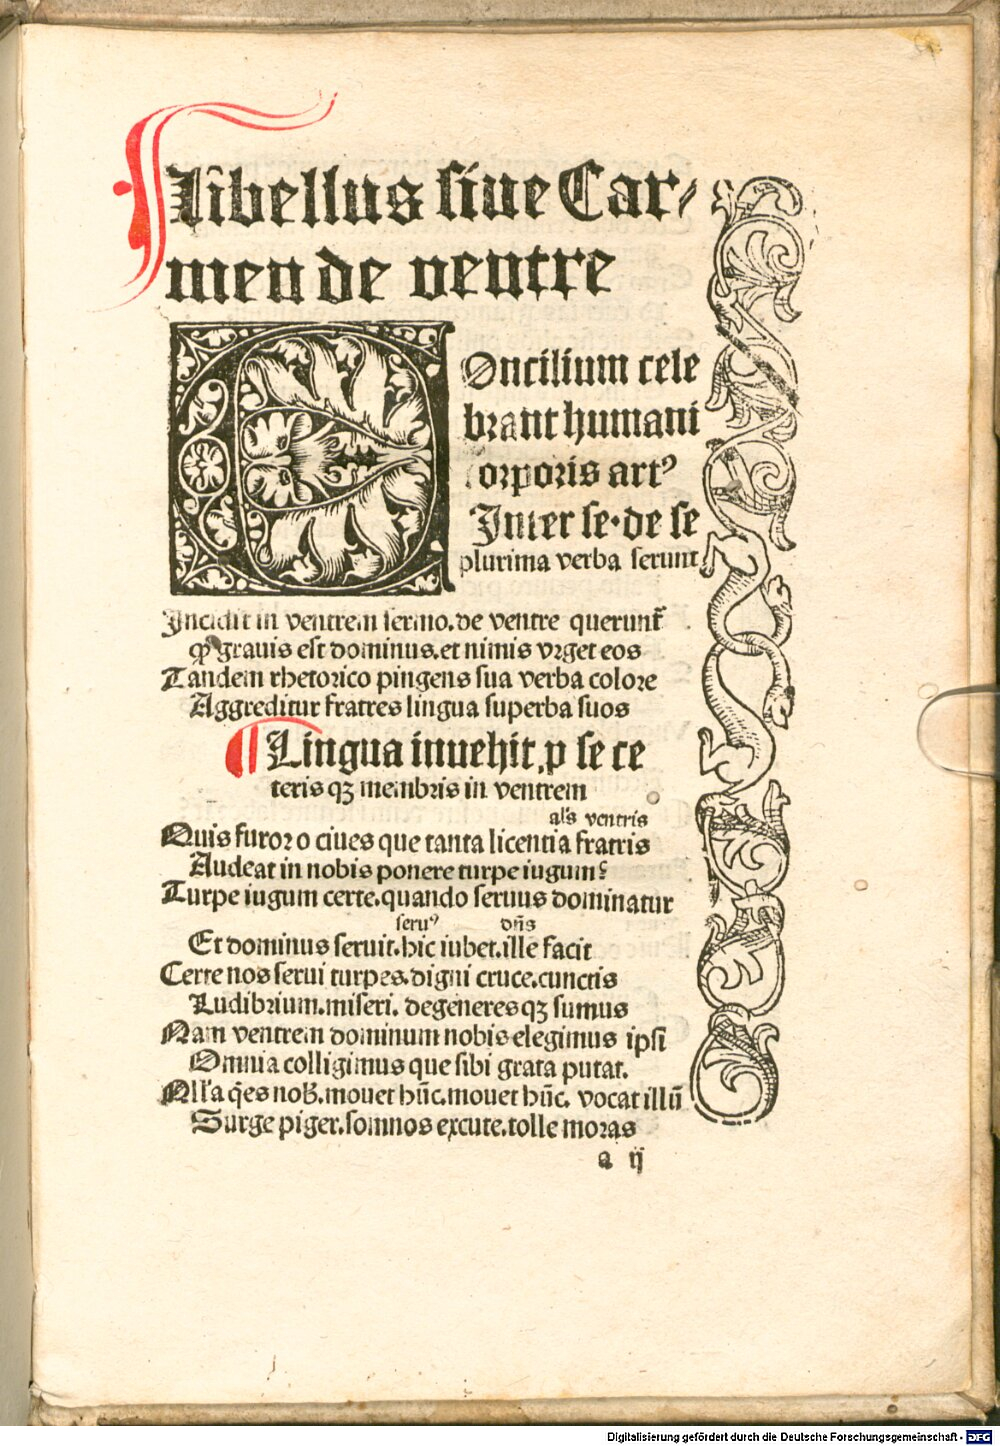 Libellus siue Car⸗
men de ventre
COncilium cele
brant humani
corporis art⁹
Inter se·de se
plurima verba serunt
Incidit in ventrem sermo.de ventre querunt᷑
ꝙ grauis est dominus.et nimis vrget eos
Tandem rhetorico pingens sua verba colore
Aggreditur fratres lingua superba suos
¶ Lingua inuehit.p se ce
teris qꝫ membris in ventrem
als ventris
Quis furor o ciues que tanta licentia fratris
Audeat in nobis ponere turpe iugum?
Turpe iugum certe.quando seruus dominatur
seru⁹ dn̄s
Et dominus seruit.hic iubet.ille facit
Certe nos serui turpes.digni cruce.cunctis
Ludibrium.miseri. degeneresqꝫ sumus
Nam ventrem dominum nobis elegimus ipsi
Omnia colligimus que sibi grata putat.
Nlla q̄es nob̄.mouet hūc.mouet hūc. vocat illū
Surge piger.somnos excute.tolle moras
a ij
Digitalisierung gefördert durch die Deutsche Forschungsgemeinschaft - DFG